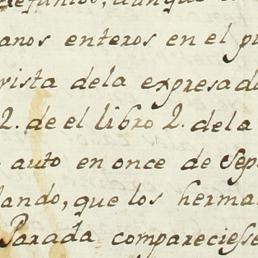 defuntos, aunque
anos enteros en el p
rista dela expresad
2. de el libro 2. dela
auto en once de Sep
lando, que los herma
Parada compareciesse